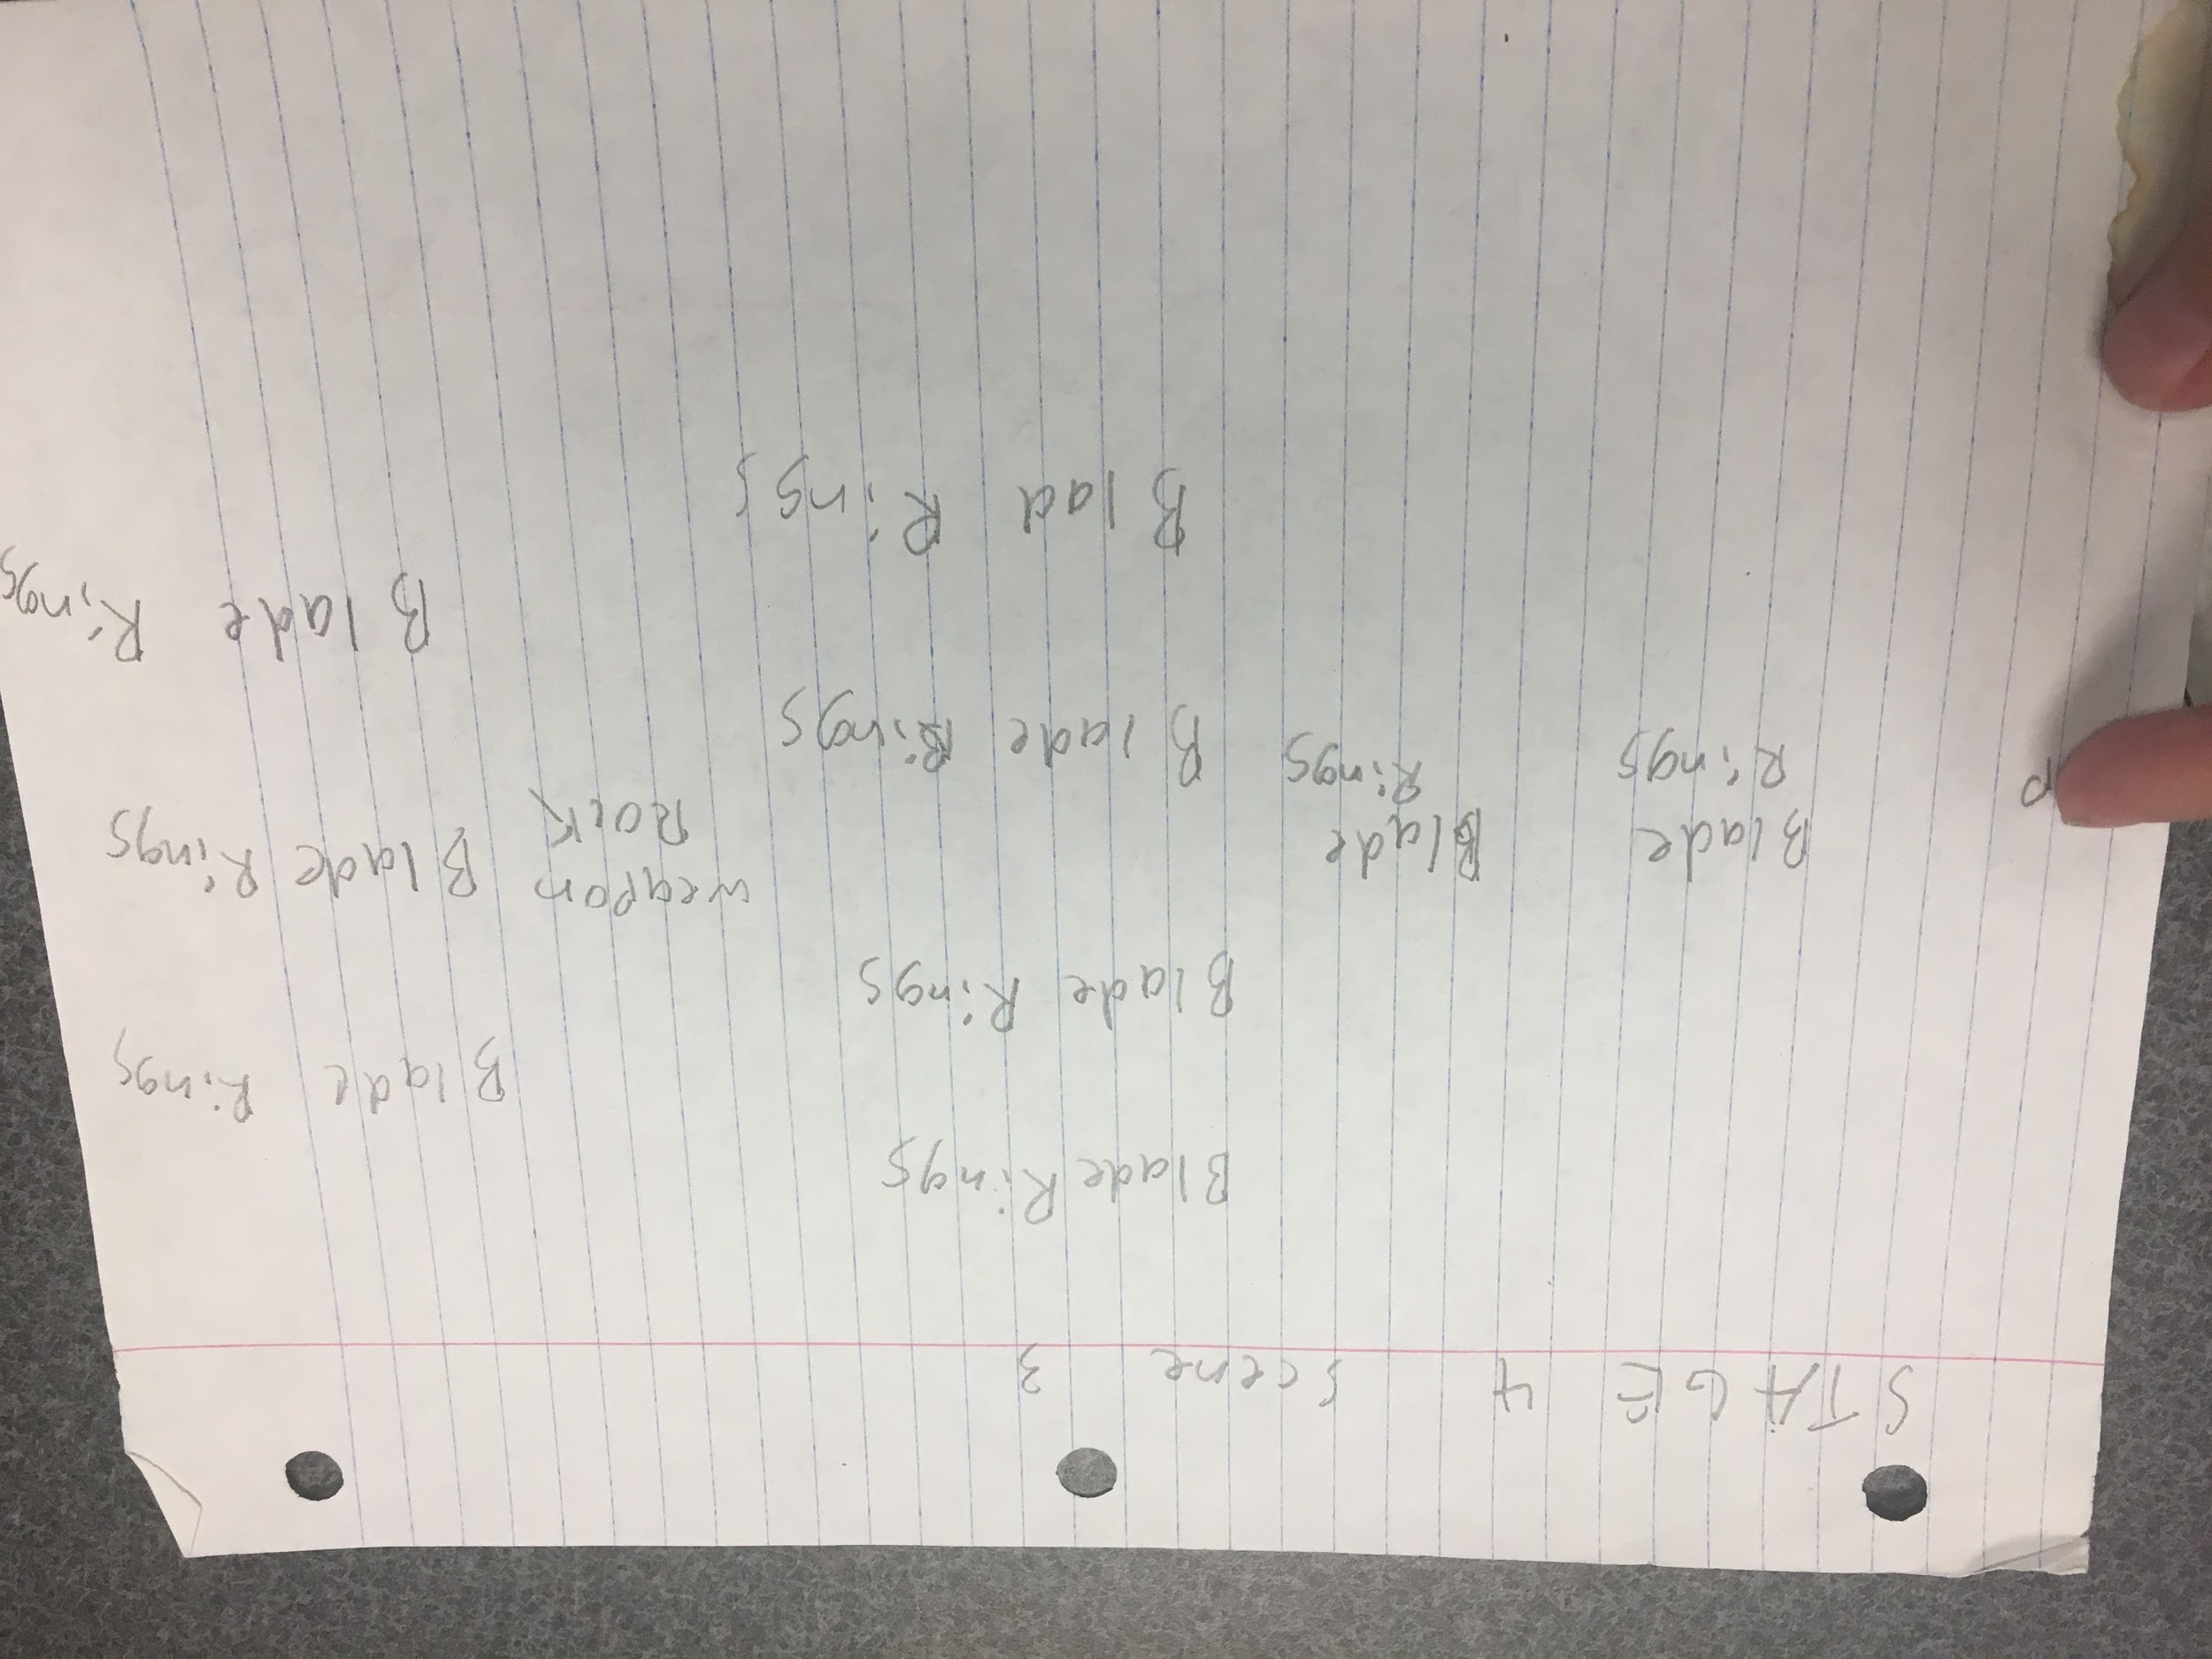 STAGE 4 Scene 3
Blade Rings
Blade Rings
Blade Rings
P
Blade
Rings
Blade
Rings
weapon
Rock
Blade Rings
Blade Rings
Blade Rings
Blad Rings